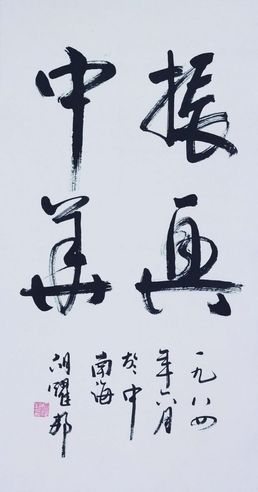 振兴
中华
一九八四
年六月
於中
南海
胡耀邦